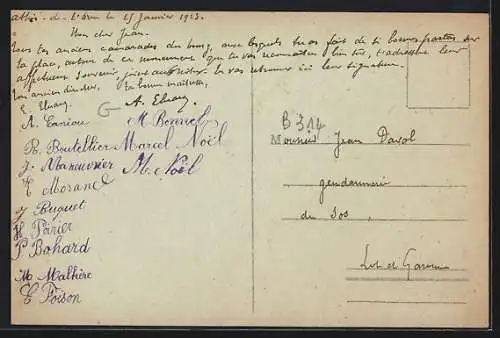 Athis-de-l'Orne le 25 Janvier 1923.
Mon cher Jean.
Tous tes anciens camarades du bourg, avec lesquels tu as fait de si bonnes parties sur
la place, autour de ce monument que tu vas reconnaître bientôt, t'adressent leur
affectueux souvenir, Tu vas retrouver ici leur signature.
Ton ancien directeur, ta bonne maîtresse,
E. A.
A.
M. Bonnel
B 314
R. Bouteltier Marcel Noël
J. Maneuvrier M. Noël
Morand
J Buquet
H Parier
P Bohard
M Malhère
C Poison
Monsieur Jean Davol
gendarmerie
du Sos
Lot et Garonne